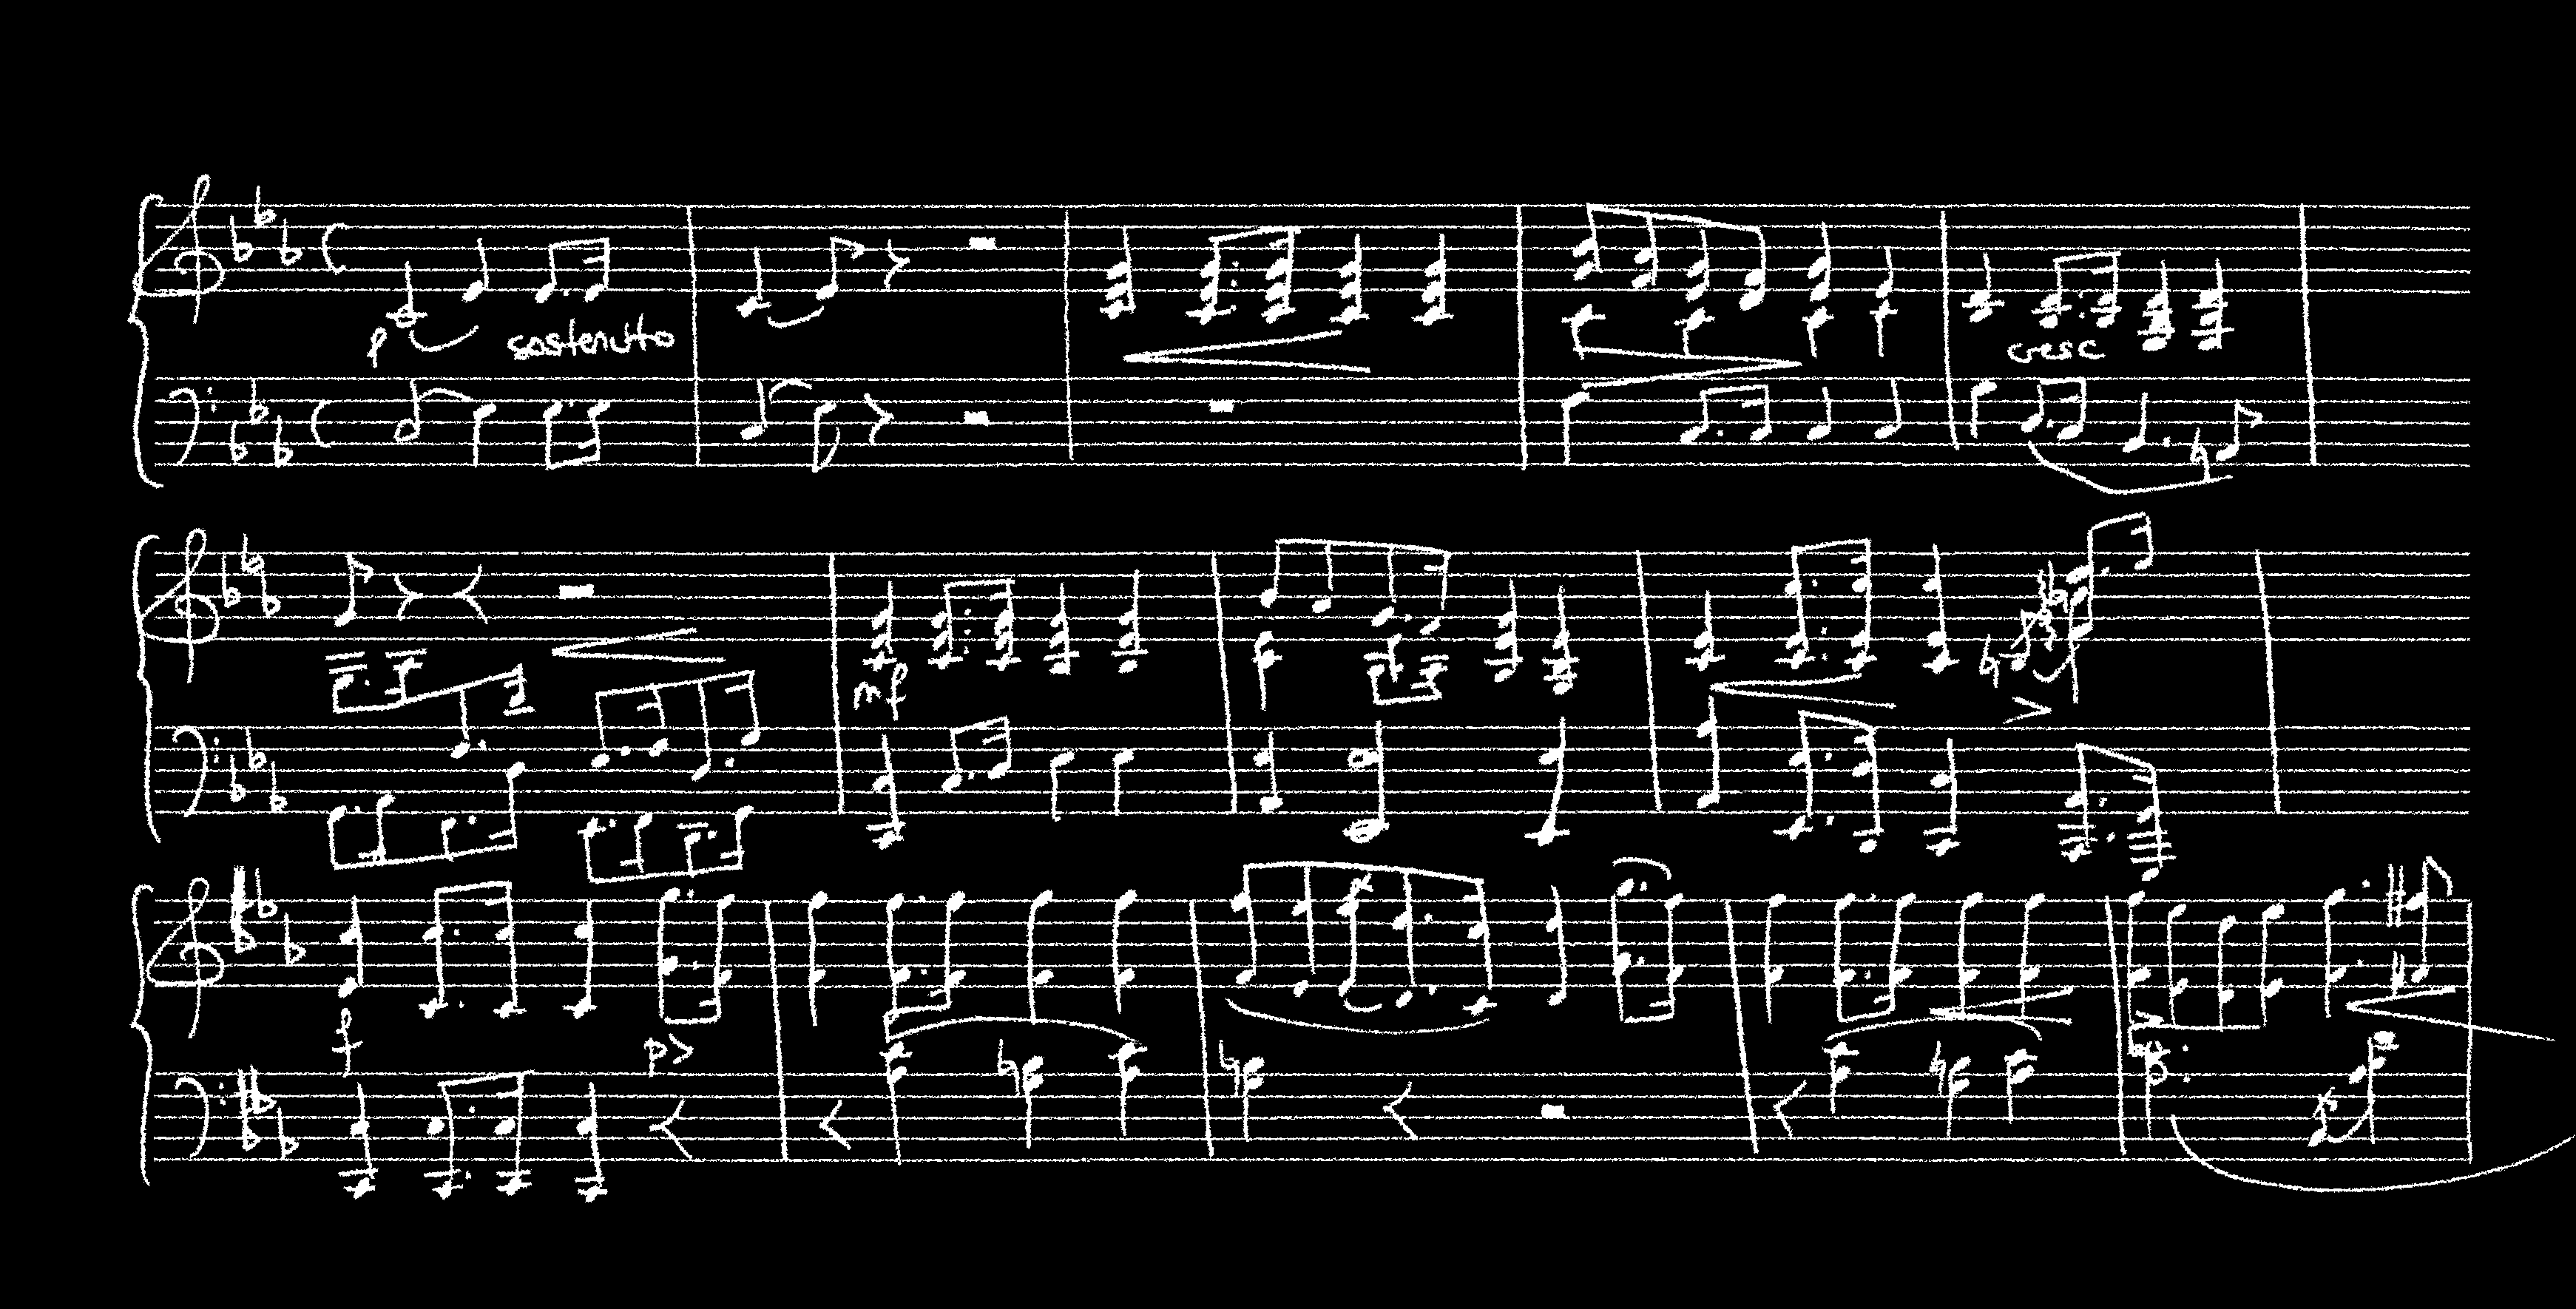 p sostenutto
cresc
mf
f p